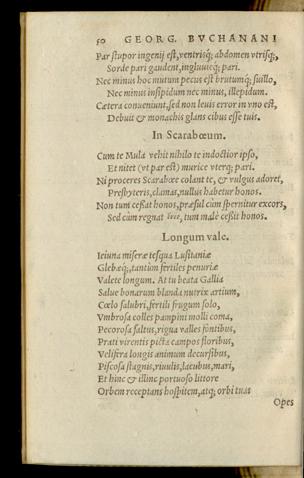 50 GEORG. BVCHANANI
Par stupor ingenij est, ventrisq; abdomen vtrisq;,
Sorde pari gaudent, ingluuieq; pari.
Nec minus hoc mutum pecus est brutumq; suillo,
Nec minus insipidum nec minus, illepidum.
Cætera conueniunt, sed non leuis error in vno est,
Debuit & monachis glans cibus esse tuis.
In Scarabœum.
Cum te Mula vehit nihilo te indoctior ipso,
Et nitet (vt par est) murice vterq; pari.
Ni proceres Scarabœe colant te, & vulgus adoret,
Presbyteris, clamas, nullus habetur honos.
Non tum cessat honos, præsul cùm spernitur excors,
Sed cùm regnat tum malè cessit honos.
Longum vale.
Ieiuna miseræ tesqua Lusitaniæ
Glebæq́;, tantùm fertiles penuriæ
Valete longum. At tu beata Gallia
Salue bonarum blanda nutrix artium,
Cœlo salubri, fertili frugum solo,
Vmbrosa colles pampini molli coma,
Pecorosa saltus, rigua valles fontibus,
Prati virentis picta campos floribus,
Velifera longis amnium decursibus,
Piscosa stagnis, riuulis, lacubus, mari,
Et hinc & illinc portuoso littore
Orbem receptans hospitem, atq; orbi tuas
Opes